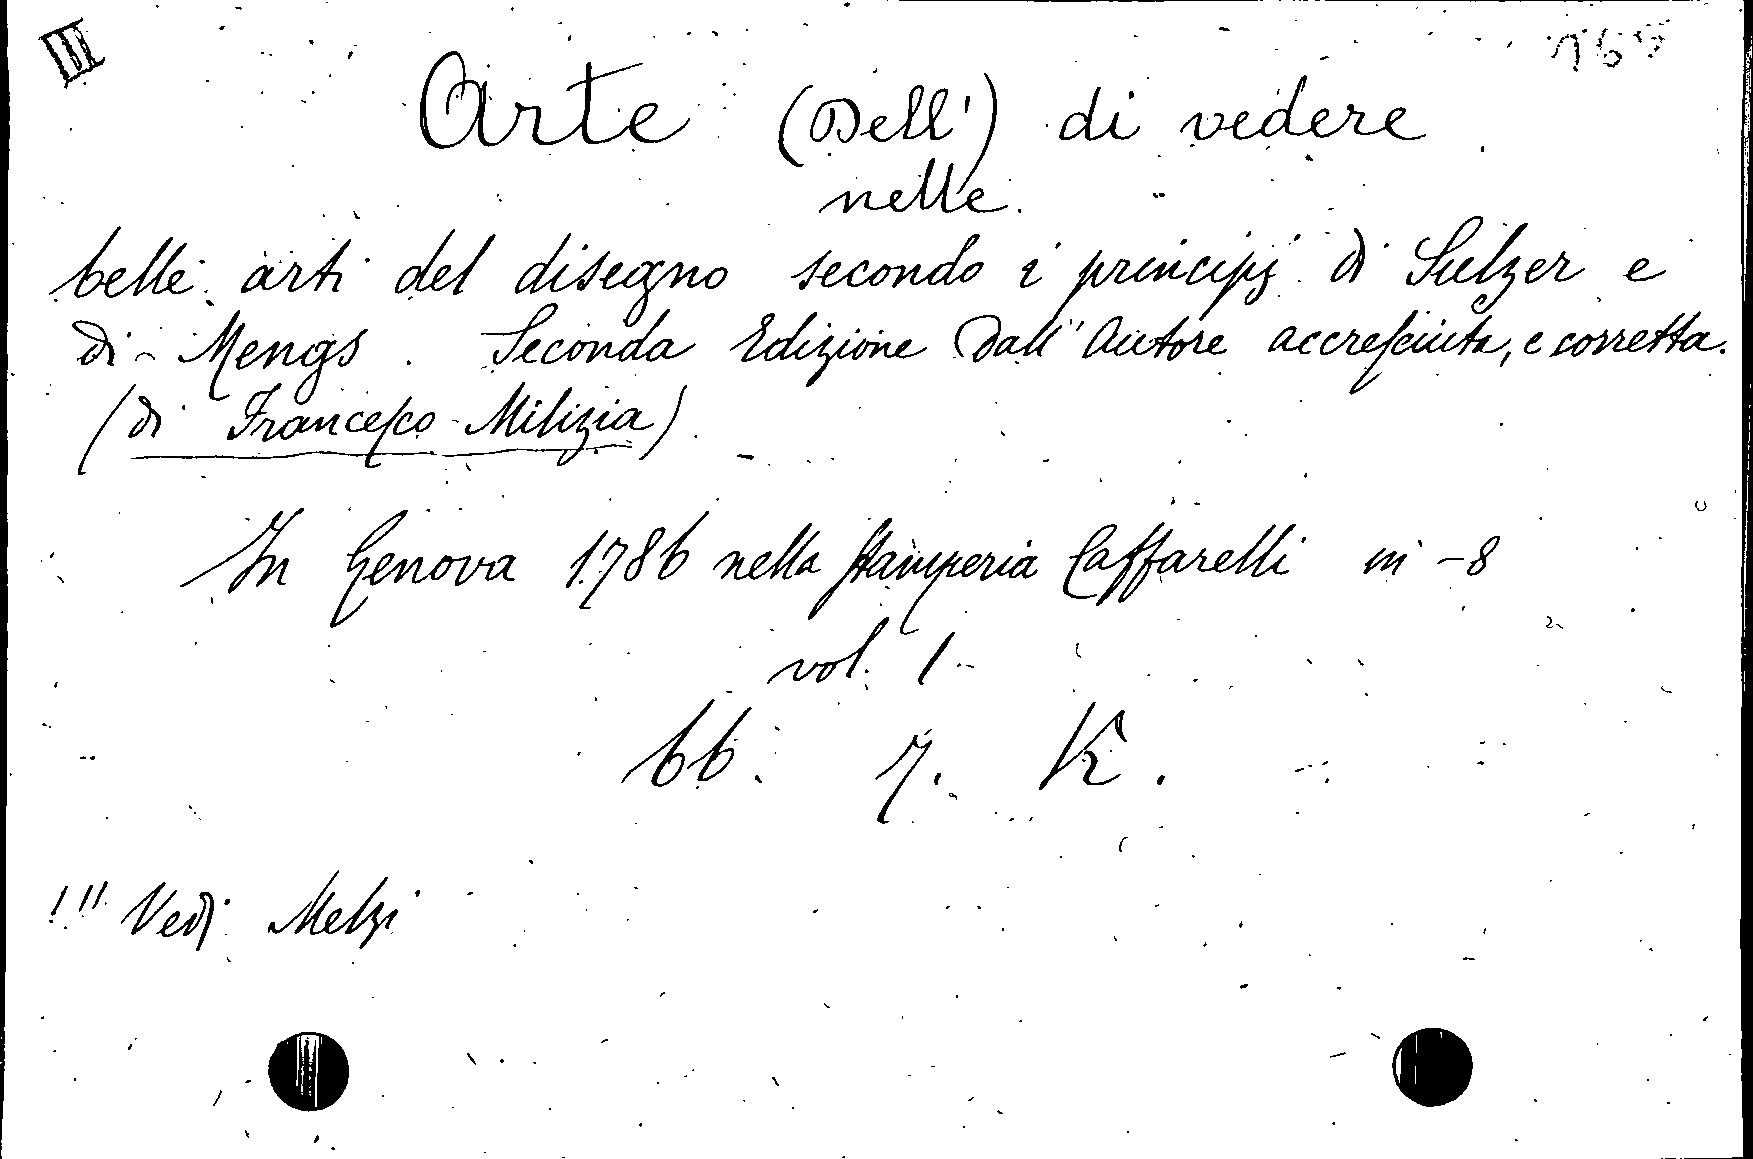 III
165
Arte (Dell') di vedere
nelle
belle arti del disegno secondo i principj di Sulzer e
di Mengs. Seconda Edizione Dall' Autore accresciuta, e corretta.
(di Francesco Milizia)
In Genova 1786 nella stamperia Caffarelli in -8
vol. 1
66. 7. K.
!!! Vedi Melzi